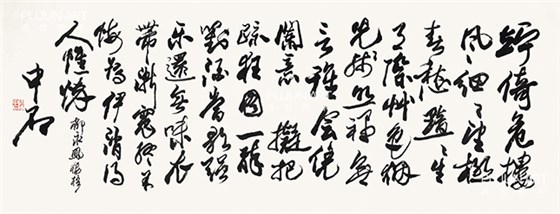 竚倚危樓
風細〻望極
春愁黯〻生
天際艸色烟
光殘照裡無
言誰會憑
闌意 擬把
疏狂圖一醉
對酒當歌強
樂還無味衣
帶漸寬終不
悔為伊消得
人憔悴 柳永鳳棲梧
中石